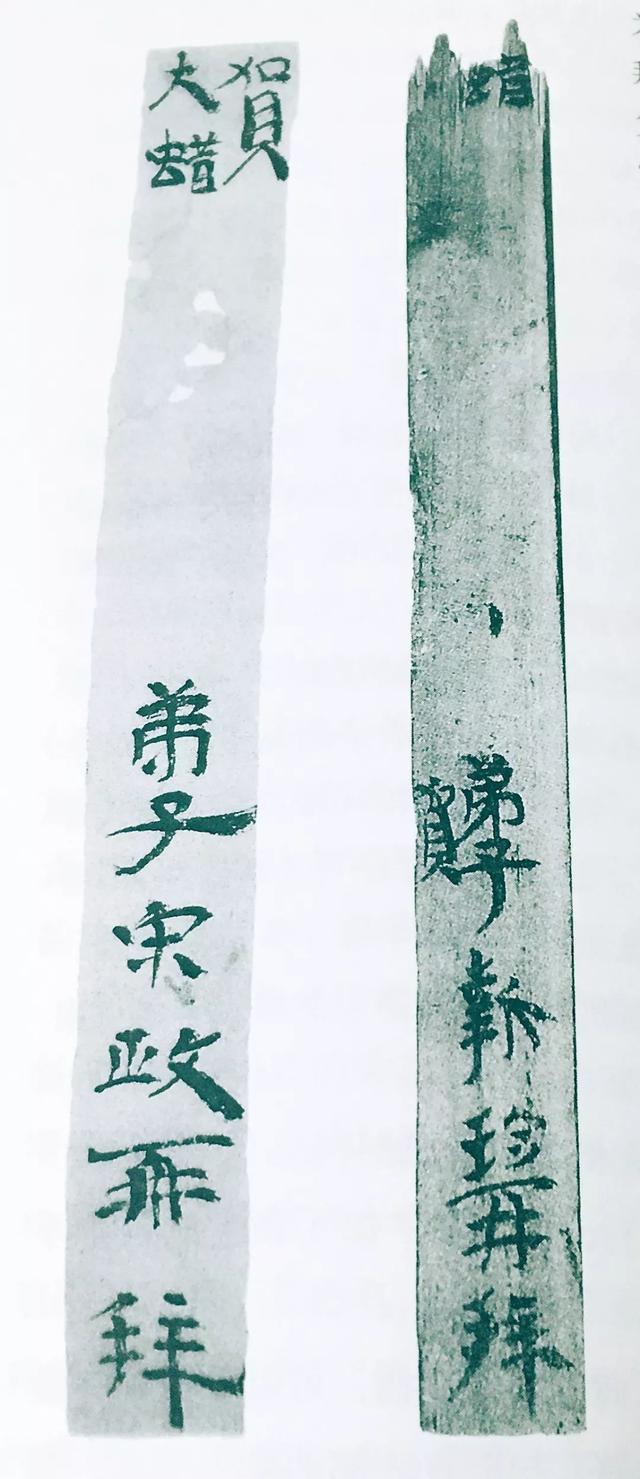 賀
大蜡
弟子宋政再拜
蜡
弟子再拜
賀